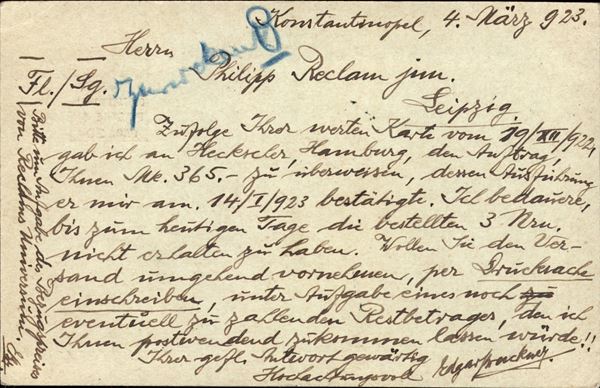 Konstantinopel, 4. März 923.
Herrn
Philipp Reclam jun.
Fl./Sg.
Leipzig.
Zufolge Ihrer werten Karte vom 19/XII/922,
gab ich an Heckscher, Hamburg, den Auftrag,
Ihnen Mk. 365.- zu überweisen, dessen Ausführung
er mir am 14/I/923 bestätigte. Ich bedauere,
bis zum heutigen Tage die bestellten 3 Nrn.
nicht erhalten zu haben. Wollen Sie den Ver-
sand umgehend vornehmen, per Drucksache
einschreiben, unter Aufgabe eines noch zu
eventuell zu zallenden Restbetrages, den ich
Ihnen postwendend zukommen lassen würde!!
Ihrer gefl. Antwort gewärtig
Hochachtungsvoll
Bitte um Aufgabe des Bezugspreises
von Reclams Universum.